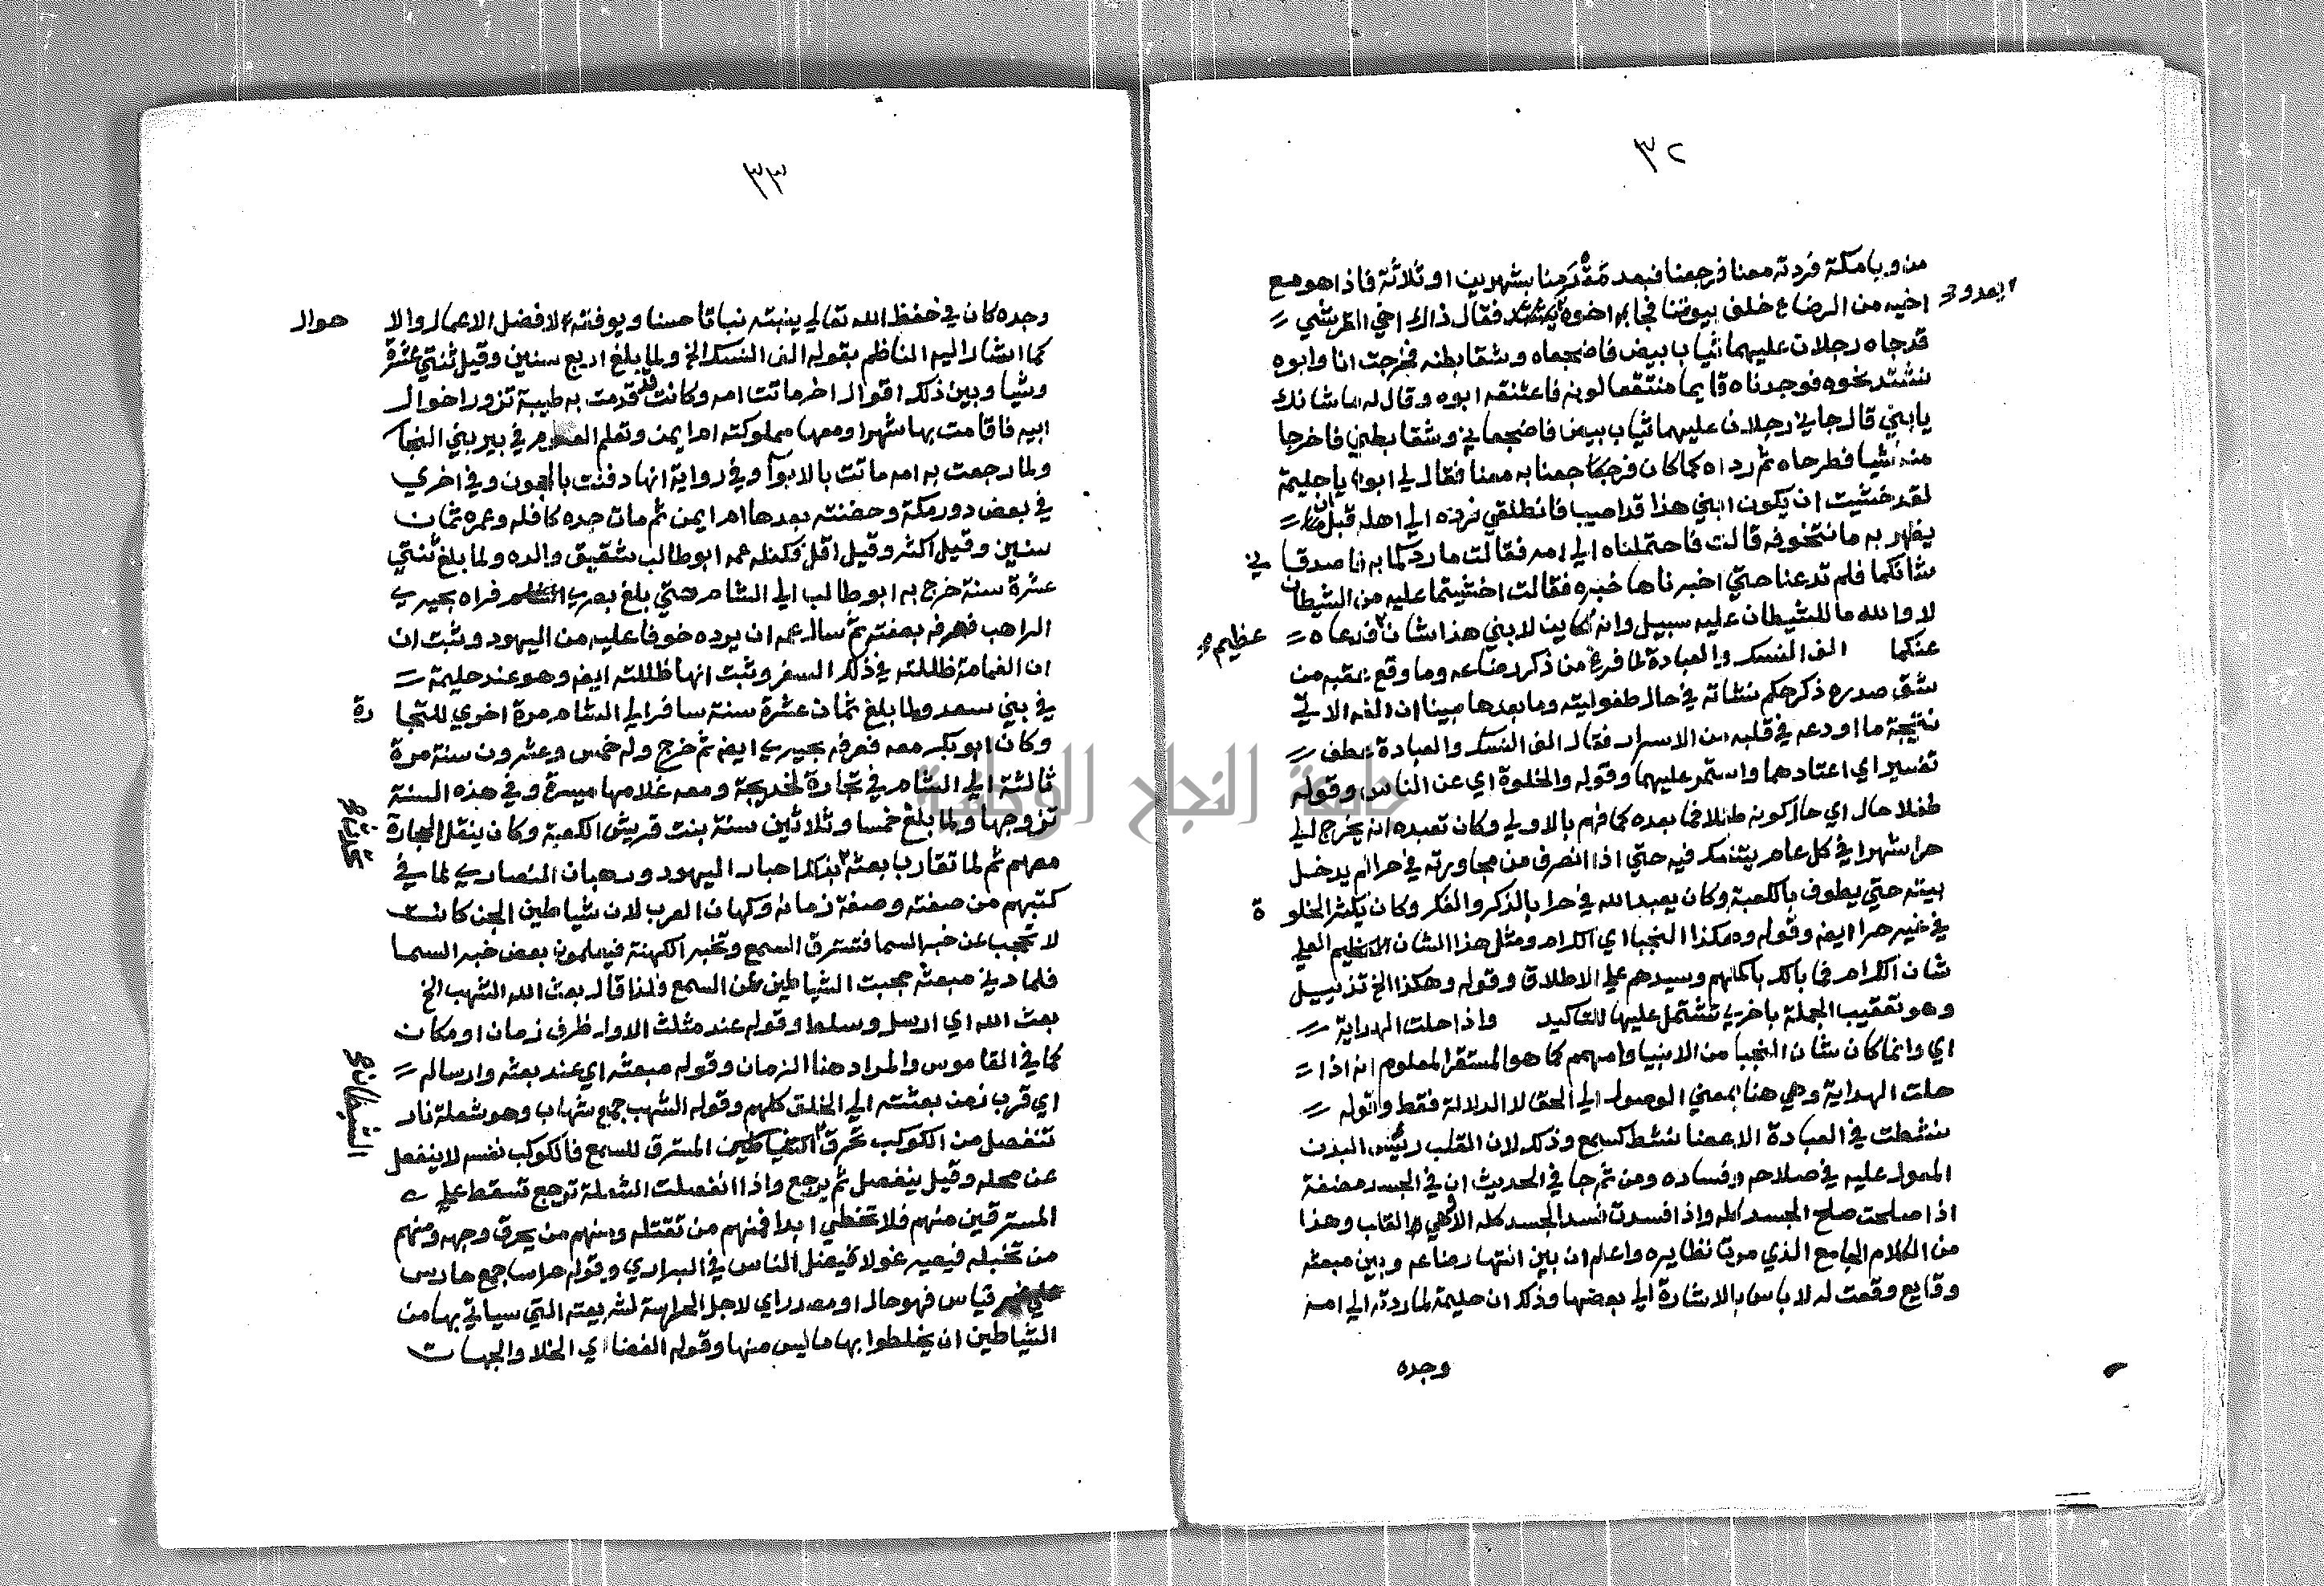 ٣٢
من وبا مكة فردته معنا فرجعنا فبعد مقدمنا بشهرين او ثلاثة فاذا هو مع
اخيه من الرضاع خلف بيوتنا فجا اخوه يشتد فقال ذاك اخي القرشي =
قد جاه رجلان عليهما ثياب بيض فاضجعاه وشقا بطنه فخرجت انا وابوه
نشتد نحوه فوجدناه قايما منتقعا لونه فاعتنقه ابوه وقال له ما شانك
يابني قال جاني رجلان عليهما ثياب بيض فاضجعاني وشقا بطني فاخرجا
منه شيا فطرحاه ثم رداه كما كان فرجعنا به معنا فقال لي ابوه يا حليمة
لقد خشيت ان يكون ابني هذا قد اصيب فانطلقي نرده الي اهله قبل ان =
يظهر به ما نتخوفه قالت فاحتملناه الي امه فقالت ما ردكما به فاصدقاني
شانكما فلم تدعنا حتي اخبرناها خبره فقالت اخشيتما عليه من الشيطان
لا والله ما للشيطان عليه سبيل وانه لكاين لابني هذا شان فدعاه = عظيم
عنكما الف النسك والعبادة لما فرغ من ذكر رضاعه وما وقع عقبه من
شق صدره ذكر حكم نشاته في حال طفوليته وما بعدها مبينا ان الفه الاتي
نتيجة ما اودعه في قلبه من الاسرار فقال الف النسك والعبادة عطف =
تفسير اي اعتادهما واستمر عليهما وقوله والخلوة اي عن الناس وقوله
طفلا حال اي حال كونه طفلا فما بعده كما فهم بالاولي وكان تعبده انه يخرج الي
حرا شهرا في كل عام يتنسك فيه حتي اذا انصرف من مجاورته في حرا لم يدخل
بيته حتي يطوف بالكعبة وكان يعبد الله في حرا بالذكر والفكر وكان يكثر الخلوة
في غير حرا ايضا وقوله وهكذا النجبا اي الكرام ومثل هذا الشان العظيم العلي
شان الكرام فما بالك باكملهم وسيدهم علي الاطلاق وقوله وهكذا الخ تذييل
وهو تعقيب الجملة باخري تشتمل عليها للتاكيد واذا حلت الهداية =
اي وانما كان شان النجبا من الانبيا واممهم كما هو المستقر المعلوم انه اذا =
حلت الهداية وهي هنا بمعني الوصول الي الحق لا الدلالة فقط وقوله =
نشطت في العبادة الاعضا نشط كسمع وذلك لان القلب رئيس البدن
المعول عليه في صلاحه وفساده ومن ثم جا في الحديث ان في الجسد مضغة
اذا صلحت صلح الجسد كله واذا فسدت فسد الجسد كله الا وهي القلب وهذا
من الكلام الجامع الذي مرت نظايره واعلم ان بين انتها رضاعه وبين مبعثه
وقايع وقعت له لا باس بالاشارة الي بعضها وذلك ان حليمة لما ردته الي امه
وجده
٣٣
وجده كان في حفظ الله تعالي ينبته نباتا حسنا ويوفقه لافضل الاعمال والاحوال
كما اشار اليه الناظم بقوله الف النسك الخ ولما بلغ اربع سنين وقيل ثنتي عشرة
وشيا وبين ذلك اقوال اخر ماتت امه وكانت قد قدمت به طيبة تزور اخوال
ابيه فاقامت بها شهرا ومعها مملوكته ام ايمن وتعلم العوم في بير بني النجار
ولما رجعت به امه ماتت بالابوا وفي رواية انها دفنت بالحجون وفي اخري
في بعض دور مكة وحضنته بعدها ام ايمن ثم مات جده كافله وعمره ثمان
سنين وقيل اكثر وقيل اقل فكفله عمه ابو طالب شقيق والده ولما بلغ ثنتي
عشرة سنة خرج به ابو طالب الي الشام حتي بلغ بصري فراه بحيري
الراهب فعرفه بصفته ثم سال عمه ان يرده خوفا عليه من اليهود وثبت ان
ان الغمامة ظللته في ذلك السفر وثبت انها ظللته ايضا وهو عند حليمة =
في بني سعد ولما بلغ ثمان عشرة سنة سافر الي الشام مرة اخري للتجارة
وكان ابو بكر معه فعرفه بحيري ايضا ثم خرج وله خمس وعشرون سنة مرة
ثالثة الي الشام في تجارة لخديجة ومعه غلامها ميسرة وفي هذه السنة
تزوجها ولما بلغ خمسا وثلاثين سنة بنت قريش الكعبة وكان ينقل الحجارة
معهم ثم لما تقارب بعثه احبار اليهود ورهبان النصاري لما في
كتبهم من صفته وصفة زمانه وكهان العرب لان شياطين الجن كانت
لا تحجب عن خبر السما فتسترق السمع وتخبر الكهنة فيعلمون بعض خبر السما
فلما دني مبعثه حجبت الشياطين عن السمع ولذا قال بعث الله الشهب الخ
بعث الله اي ارسل وسلط وقوله عند مثلث الاول ظرف زمان او مكان
كما في القاموس والمراد هنا الزمان وقوله مبعثه اي عند بعثه وارساله =
اي قرب زمن بعثته الي الخلق كلهم وقوله الشهب جمع شهاب وهو شعلة نار
تنفصل من الكوكب تحرق المسترق للسمع فالكوكب نفسه لا ينفصل
عن محله وقيل ينفصل ثم يرجع واذا انفصلت الشعلة ترجع تسقط علي
المسترقين منهم فلا تخطي ابدا فمنهم من تقتله ومنهم من يحرق وجهه ومنهم
من تخبله فيصير غولا فيضل الناس في البراري وقوله حراسا جمع حارس
علي غير قياس فهو حال او مصدر اي لاجل الحراسة لشريعته التي سياتي بها من
الشياطين ان يخلطوا بها ما ليس منها وقوله الفضا اي الخلا والجهات
جامعة النجاح الوطنية